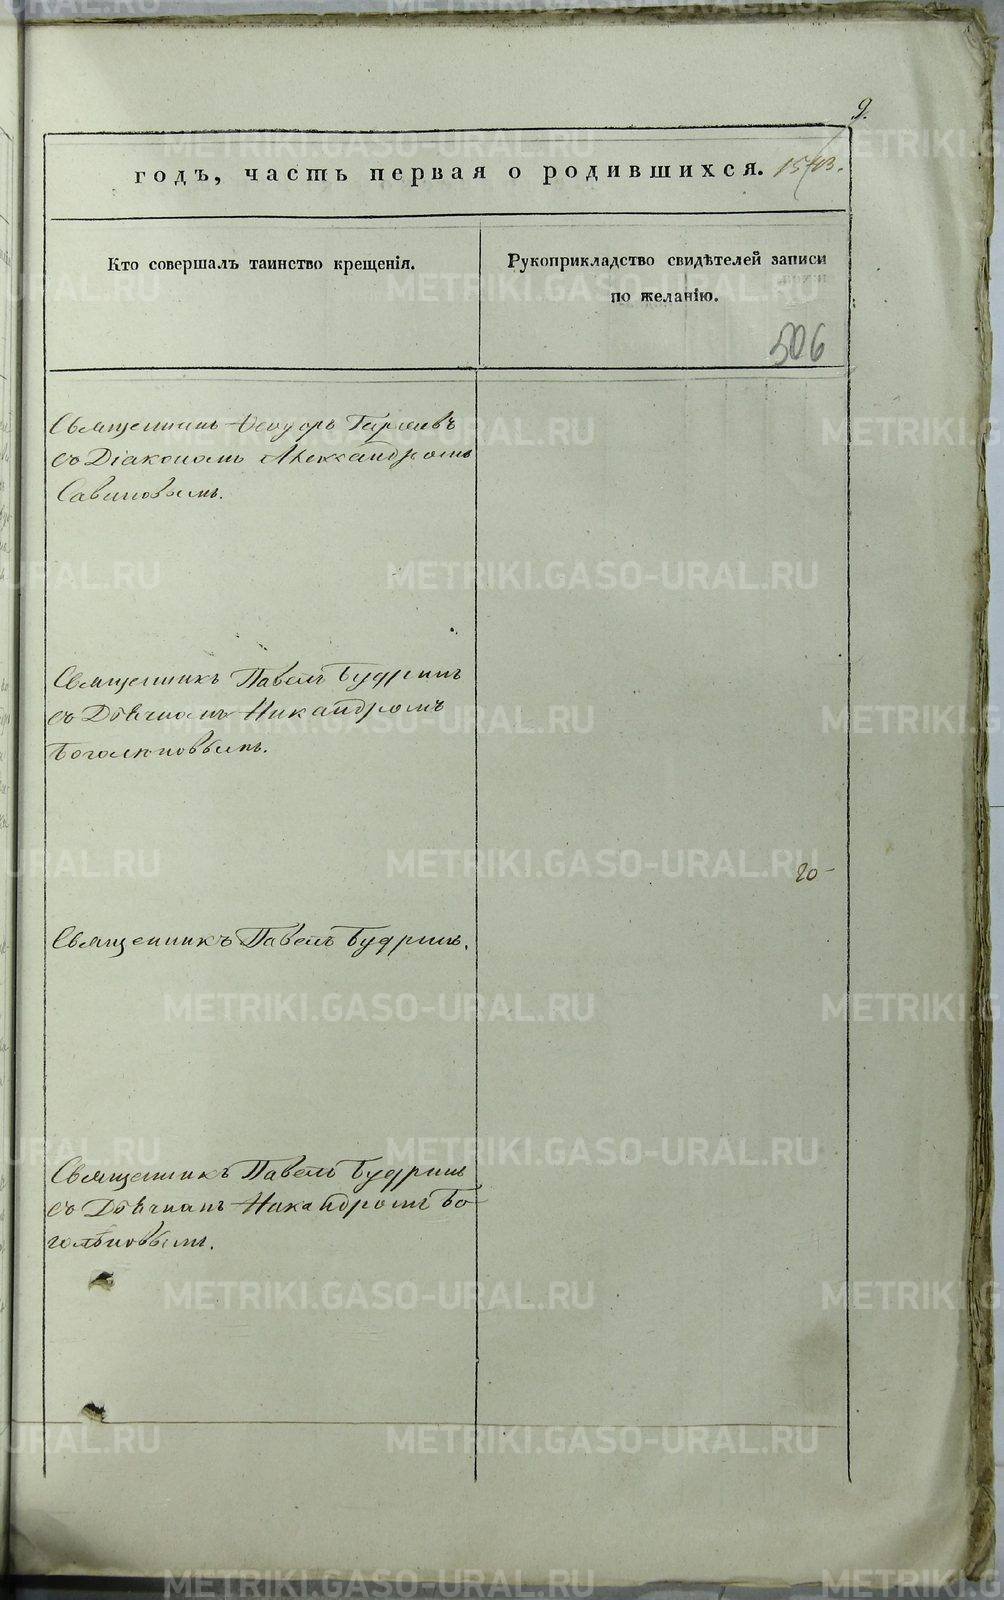 9.
годъ, часть первая о родившихся.
Кто совершалъ таинство крещенія.
Рукоприкладство свидѣтелей записи
по желанію.
506
Священникъ Ѳеодоръ
съ Діакономъ Александромъ
Савиновымъ.
Священникъ Павелъ Будринъ
съ Дьячкомъ Никандромъ
Боголѣповымъ.
20
Священникъ Павелъ Будринъ.
Священникъ Павелъ Будринъ
съ Дьячкомъ Никандромъ Бо-
голѣповымъ.
METRIKI.GASO-URAL.RU